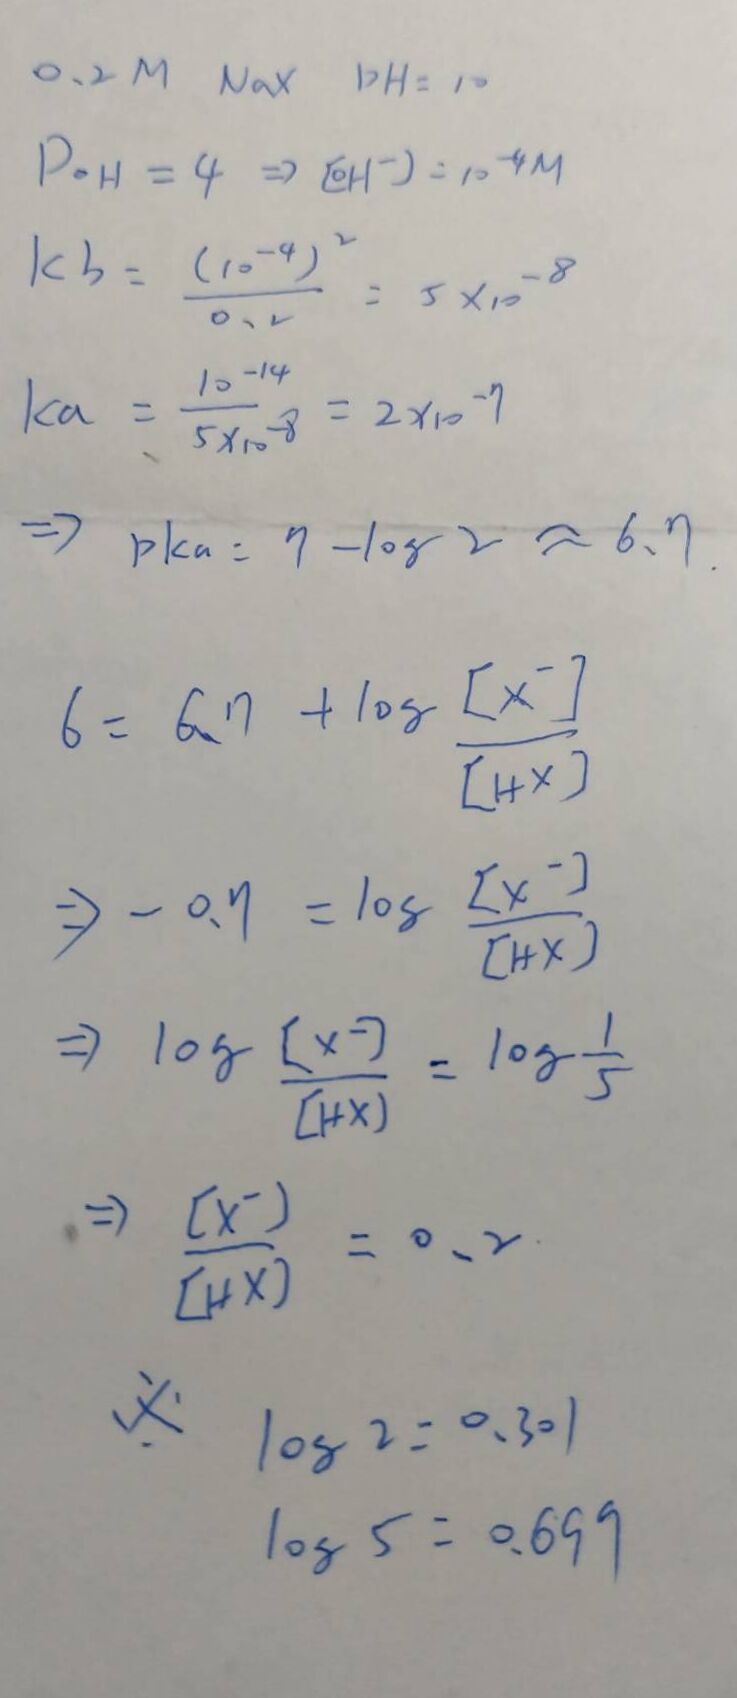 0.2M NaX pH=10
POH = 4 ⇒ [OH⁻] = 10⁻⁴M
kb = (10⁻⁴)² / 0.2 = 5×10⁻⁸
ka = 10⁻¹⁴ / 5×10⁻⁸ = 2×10⁻⁷
⇒ pka = 7 − log 2 ≈ 6.7.
6 = 6.7 + log [X⁻] / [HX]
⇒ − 0.7 = log [X⁻] / [HX]
⇒ log [X⁻] / [HX] = log 1/5
⇒ [X⁻] / [HX] = 0.2
※ log 2 = 0.301
log 5 = 0.699